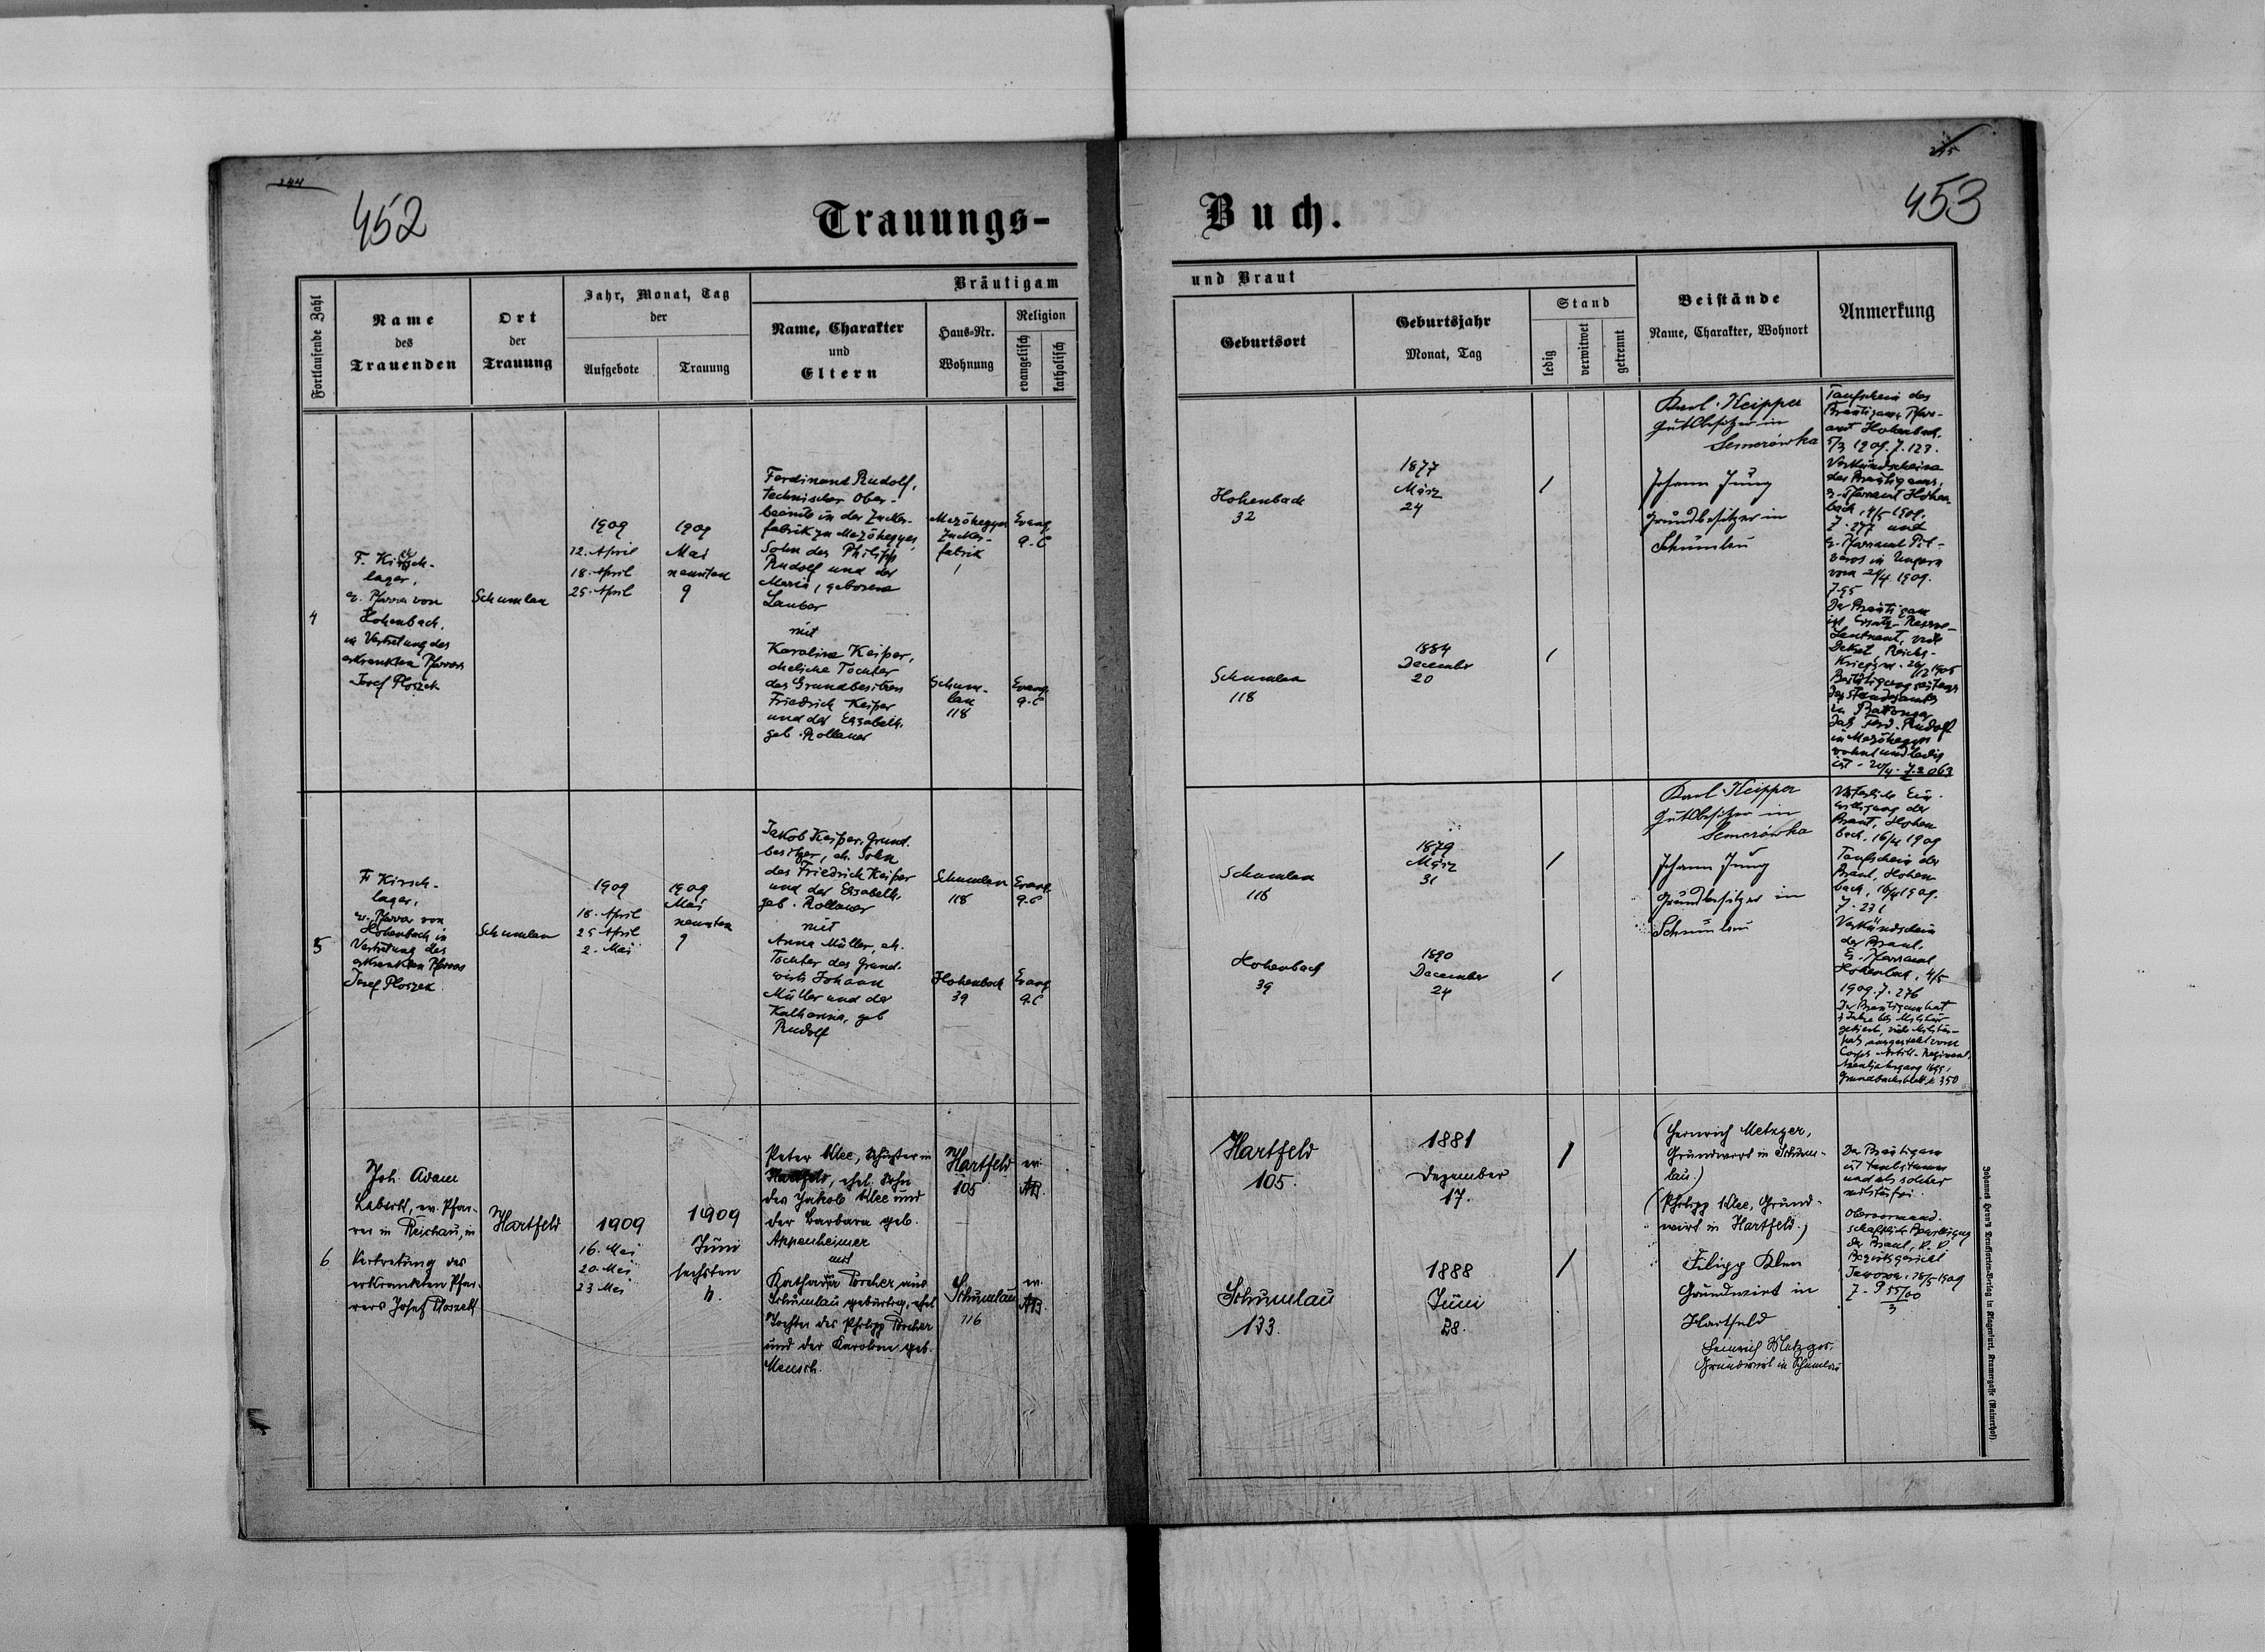 244
452
Trauungs-
Fortlaufende Zahl
Name
des
Trauenden
Ort
der
Trauung
Jahr, Monat, Tag
der
Aufgebote
Trauung
Bräutigam
Name, Charakter
und
Eltern
Haus-Nr.
Wohnung
Religion
evangelisch
katholisch
4
F. Kirsch-
lager,
ev. Pfarrer von
Hohenbach.
in Vertretung des
erkrankten Pfarrers
Josef Ploszek
Schumlau
1909
12. April
18. April
25. April
1909
Mai
neunten
9
Ferdinand Rudolf,
technischer Ober-
beamte in der Zucker-
fabrik zu Mezöhegyes,
Sohn des Philipp
Rudolf und der
Maria, geborene
Lauber
mit
Karolina Keiper,
eheliche Tochter
des Grundbesitzers
Friedrich Keiper
und der Elisabeth,
geb. Rollauer
Mezöhegyes
Zucker-
fabrik
Evang
A.C
Schum-
lau
118
Evang
A.C
5
F. Kirsch-
lager,
ev. Pfarrer von
Hohenbach in
Vertretung des
erkrankten Pfarrers
Josef Ploszek
Schumlau
1909
18. April
25 April
2. Mai
1909
Mai
neunten
9
Jakob Keiper, Grund-
besitzer, eh. Sohn
des Friedrich Keiper
und der Elisabeth,
geb. Rollauer
mit
Anna Müller, eh.
Tochter des Grund-
wirts Johann
Müller und der
Katharina, geb
Rudolf
Schumlau
118
Evang
A.C
Hohenbach
39
Evang
A.C
6
Joh. Adam
ev. Pfar-
rer in Reichau, in
Vertretung des
erkrankten Pfar-
rers Josef Ploszek
Hartfeld
1909
16. Mai
20. Mai
23 Mai
1909
Juni
sechsten
6.
Peter Klee, Schuster in
Hartfeld, ehel. Sohn
des Jakob Klee und
der Barbara geb.
Appenheimer
mit
Katharina Porcher aus
Schumlau gebürtig, ehel
Tochter des Philipp Porcher
und der Karoline geb.
Mensch.
Hartfeld
105
ev.
AB.
Schumlau
116
ev.
AB.
245
453
Buch.
und Braut
Geburtsort
Geburtsjahr
Monat, Tag
Stand
ledig
verwitwet
getrennt
Beistände
Name, Charakter, Wohnort
Anmerkung
Hohenbach
32
1877
März
24
Schumlau
118
1884
December
20
Karl Keipper
Gutsbesitzer in
Semerówka
Johann Jung
Grundbesitzer in
Schumlau
Taufschein des
Bräutigams, Pfarr-
amt Hohenbach.
5/3 1909. Z. 123.
Verkündschein
des Bräutigams,
ev. Pfarramt Hohen-
bach, 4/5 1909.
Z. 277 und
ev. Pfarramt Pit-
varos in Ungarn
vom 24/4 1909.
Z. 95
Der Bräutigam
ist Reserve-
Leutnant, vide
Dekret, Reichs-
Kriegsm. 20/12 1905
Bestätigung seitens
des Standesamts
in Battonya
daß Ferd. Rudolf
in Mezöhegyes
wohnt und ledig
ist - 20/4. Z. 2063
Schumlau
118
1879
März
31
Hohenbach
39
1890
December
24
Karl Keipper
Gutsbesitzer in
Semerówka
Johann Jung
Grundbesitzer in
Schumlau
Väterliche Ein-
willigung der
Braut, Hohen
bach. 16/4 1909
Taufschein der
Braut, Hohen
bach, 16/4 1909.
Z. 231
Verkündschein
der Braut.
Ev. Pfarramt
Hohenbach, 4/5
1909. Z. 276
Der Bräutigam hat
3 Jahre bei Militär
gedient, vide Militär-
paß ausgestellt vom
Corps-Artill.-Regiment,
Assentjahrgang
Grundbuchsblatt 350
Hartfeld
105.
1881
Dezember
17.
Schumlau
133.
1888
Juni
28.
(Heinrich Metzger,
Grundwirt in Schum-
lau.)
(Philipp Klee, Grund-
wirt in Hartfeld.)
Filipp Klee
Grundwirt in
Hartfeld
Heinrich Metzger
Grundwirt in Schumlau
Der Bräutigam
ist taubstumm
und als solcher
militärfrei.
Obervormund-
schaftliche Bewilligung
der Braut, k. k
Bezirksgericht
Jaworow, 15/5 1909
Z. P 55/00
3
Johannes Heyn's Drucksorten-Verlag in Klagenfurt, Kramergasse (Rainerhof)